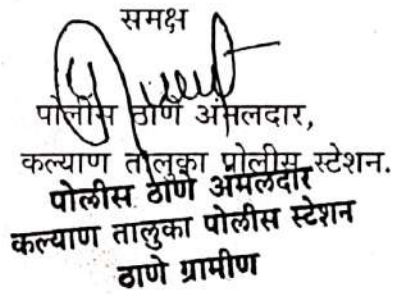 समक्ष
पोलीस ठाणे अंमलदार,
कल्याण तालुका पोलीस स्टेशन.
पोलीस ठाणे अंमलदार
कल्याण तालुका पोलीस स्टेशन
ठाणे ग्रामीण